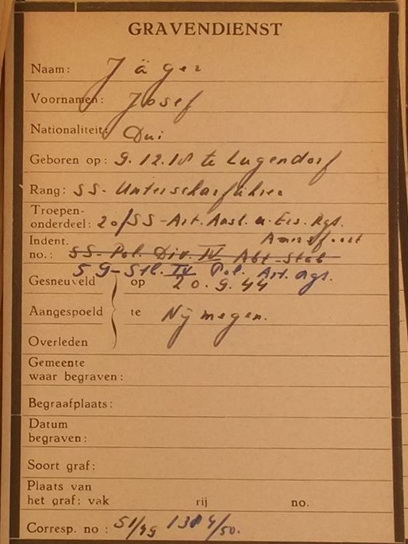 GRAVENDIENST
Naam: Jäger
Voornamen: Josef
Nationaliteit: Dui
Geboren op: 9.12.18 te Lugendorf
Rang: SS-Unterscharführer
Troepen-
onderdeel: 20/SS-Art. Ausb. u. Ers. Rgt.
Indent. Amersfoort
no.: SS-Pol. Div. IV Abt-Stab
59-Stb. IV Pol. Art. Rgt.
Gesneuveld op 20.9.44
Aangespoeld te Nijmegen.
Overleden
Gemeente
waar begraven:
Begraafplaats:
Datum
begraven:
Soort graf:
Plaats van
het graf: vak rij no.
Corresp. no: 51/49 1304/50.